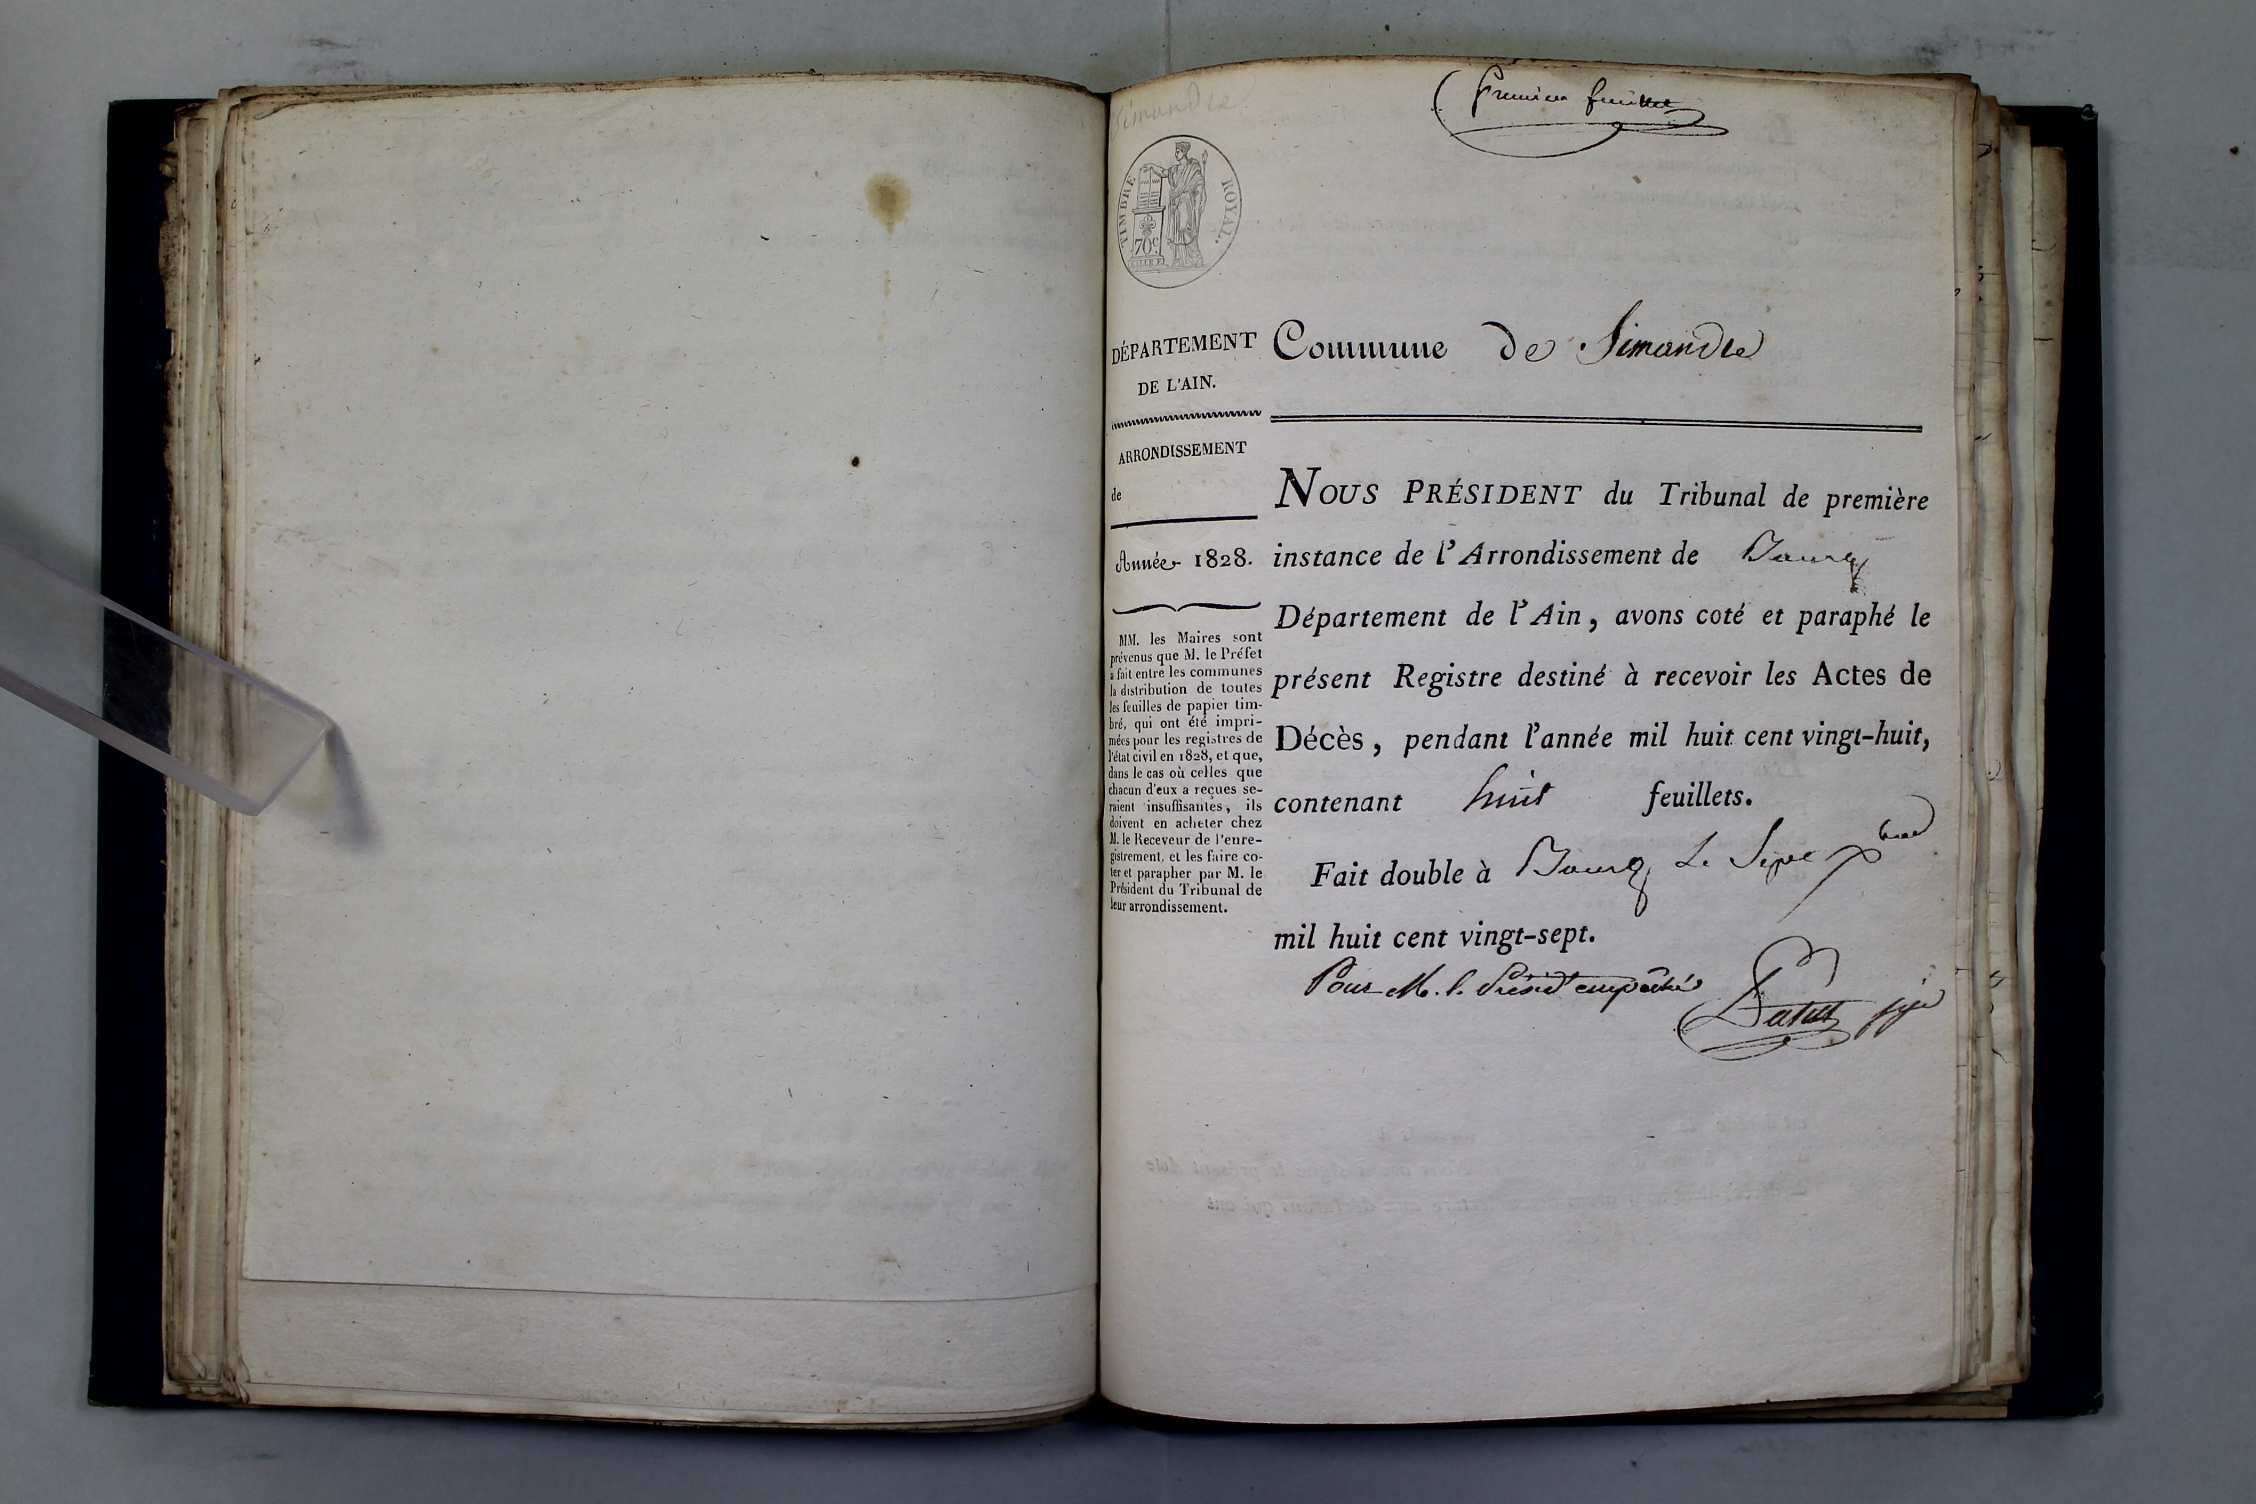 Premier feuillet
Simandre
TIMBRE ROYAL.
70c
DÉPARTEMENT
DE L'AIN.
ARRONDISSEMENT
de
Année 1828.
MM. les Maires sont
prévenus que M. le Préfet
a fait entre les communes
la distribution de toutes
les feuilles de papier tim-
bré, qui ont été impri-
mées pour les registres de
l'état civil en 1828, et que,
dans le cas où celles que
chacun d'eux a reçues se-
raient insuffisantes, ils
doivent en acheter chez
M. le Receveur de l'enre-
gistrement, et les faire co-
ter et parapher par M. le
Président du Tribunal de
leur arrondissement.
Commune de Simandre
NOUS PRÉSIDENT du Tribunal de première
instance de l'Arrondissement de Bourg
Département de l'Ain, avons coté et paraphé le
présent Registre destiné à recevoir les Actes de
Décès, pendant l'année mil huit cent vingt-huit,
contenant huit feuillets.
Fait double à Bourg Le
mil huit cent vingt-sept.
Pour M. le Présidt empêché
juge